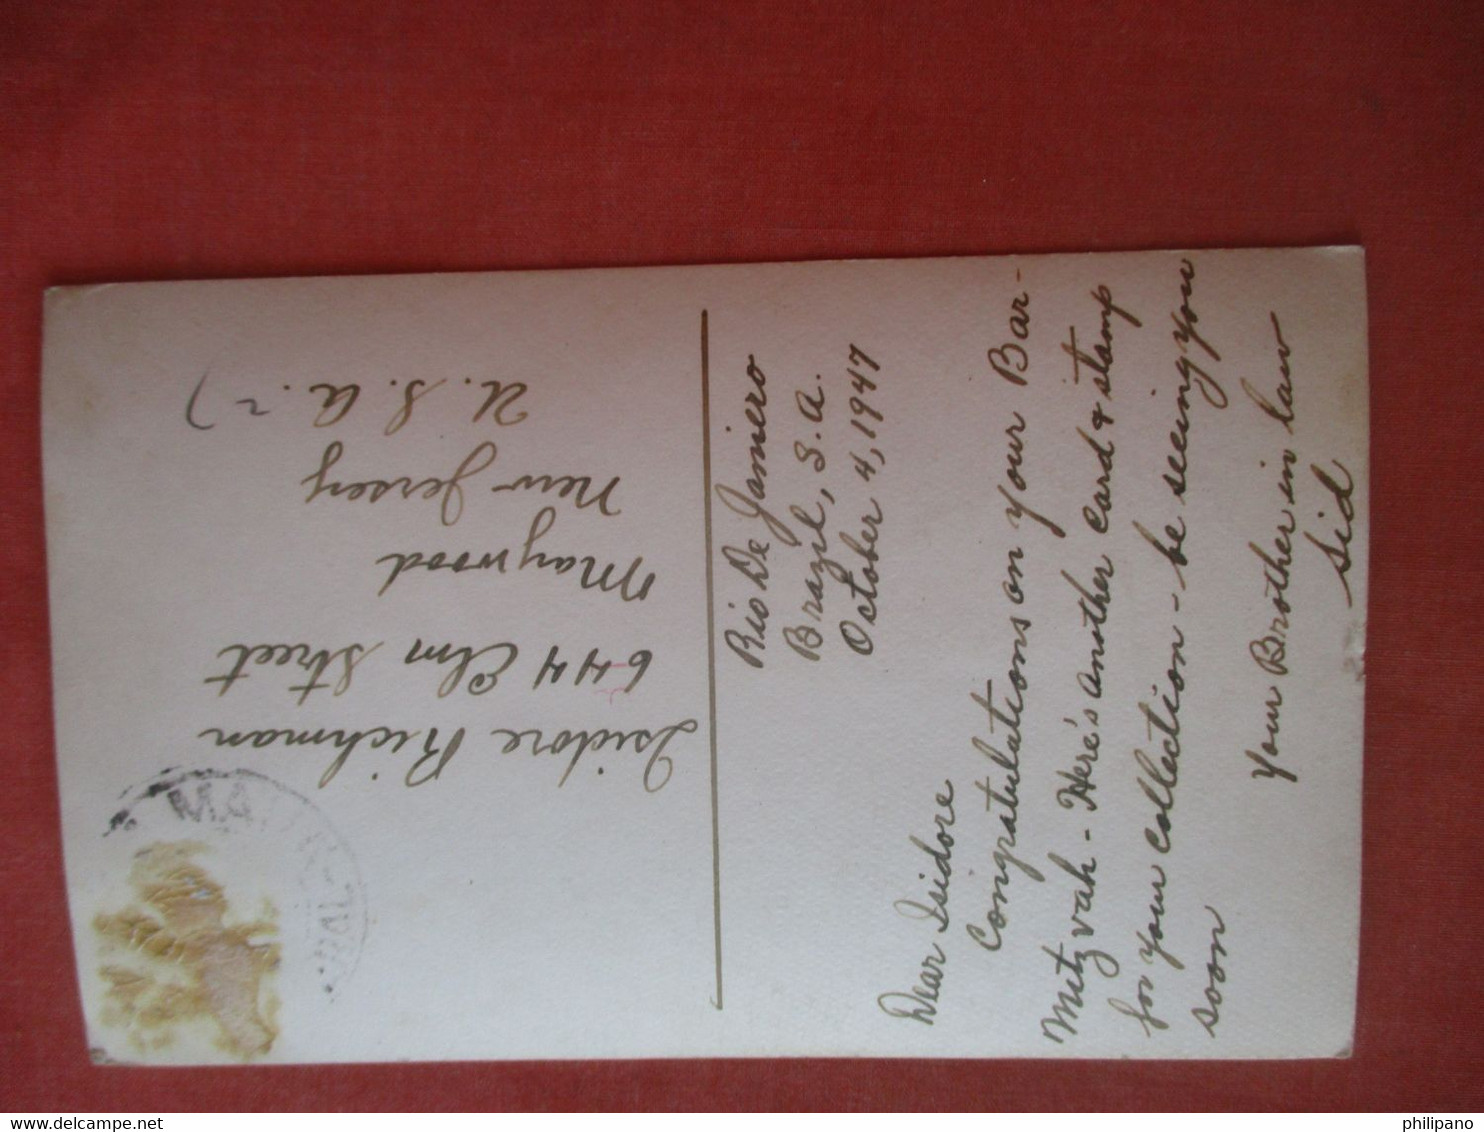 Rio De Janiero
Brazil, S.A.
October 4, 1947
Dear Isidore
Congratulations on your Bar-
Metzvah - Here's another card & stamp
for your collection - be seeing you
soon
Your Brother in law
Sid
Isidore Richman
644 Elm Street
Maywood
New Jersey
U.S.A.
philipano
delcampe.net